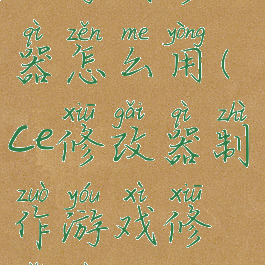 qì zěn me yòng
器怎么用(
xiū gǎi qì zhì
ce修改器制
zuò yóu xì xiū
作游戏修